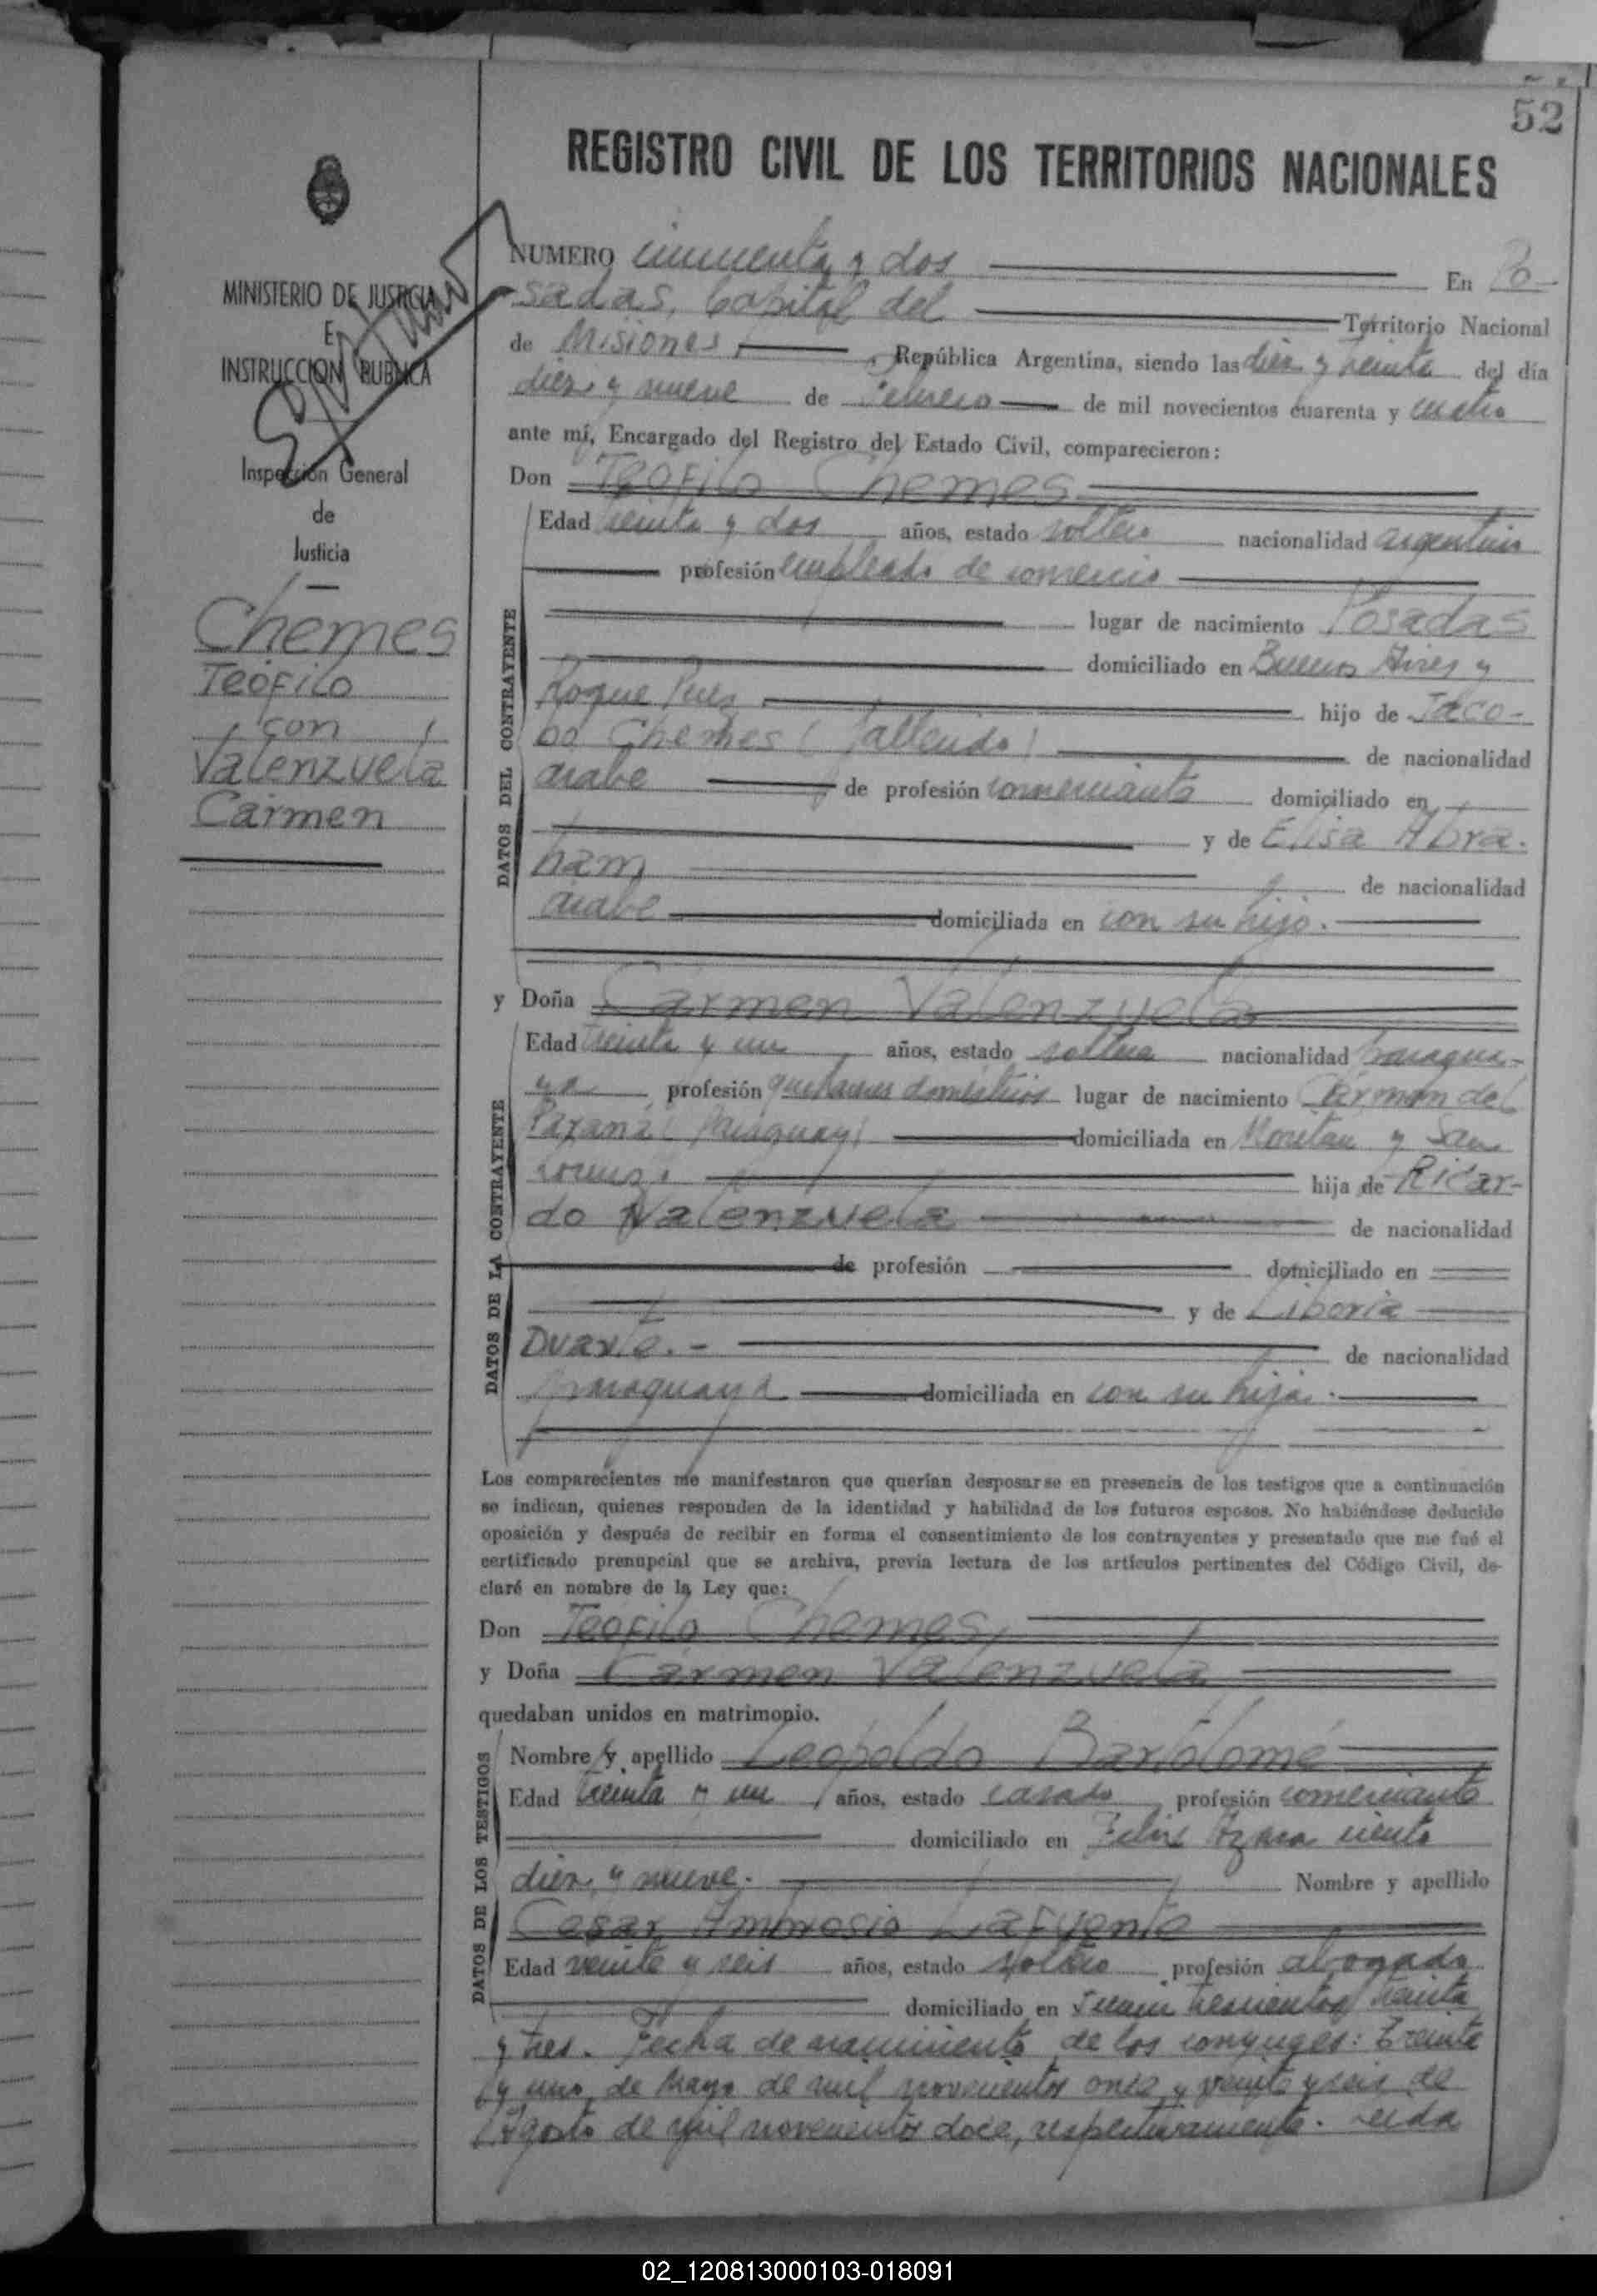 52
REGISTRO CIVIL DE LOS TERRITORIOS NACIONALES
MINISTERIO DE JUSTICIA
E
INSTRUCCION PUBLICA
Inspección General
de
Justicia
Chemes
Teófilo
con
Valenzuela
Carmen
NUMERO cincuenta y dos En Po-
sadas, Capital del Territorio Nacional
de Misiones, República Argentina, siendo las diez y treinta del día
diez y nueve de Febrero de mil novecientos cuarenta y cuatro
ante mí, Encargado del Registro del Estado Civil, comparecieron:
Don Teófilo Chemes
DATOS DEL CONTRAYENTE
Edad treinta y dos años, estado soltero nacionalidad argentino
profesión empleado de comercio
lugar de nacimiento Posadas
domiciliado en Buenos Aires y
Roque hijo de Jaco-
bo Chemes (fallecido) de nacionalidad
árabe de profesión comerciante domiciliado en
y de Elisa Abra-
ham de nacionalidad
árabe domiciliada en con su hijo.
y Doña Carmen Valenzuela
DATOS DE LA CONTRAYENTE
Edad treinta y un años, estado soltera nacionalidad paragua-
ya profesión quehaceres domésticos lugar de nacimiento Cármen del
Paraná (Paraguay) domiciliada en y San
Lorenzo. hija de Ricar-
do Valenzuela de nacionalidad
de profesión domiciliado en
y de Liboria
Duarte.- de nacionalidad
paraguaya domiciliada en con su hija.
Los comparecientes me manifestaron que querían desposarse en presencia de los testigos que a continuación
se indican, quienes responden de la identidad y habilidad de los futuros esposos. No habiéndose deducido
oposición y después de recibir en forma el consentimiento de los contrayentes y presentado que me fué el
certificado prenupcial que se archiva, previa lectura de los artículos pertinentes del Código Civil, de-
claré en nombre de la Ley que:
Don Teófilo Chemes,
y Doña Carmen Valenzuela
quedaban unidos en matrimonio.
DATOS DE LOS TESTIGOS
Nombre y apellido Leopoldo Bartolomé
Edad treinta y un años, estado casado profesión comerciante
domiciliado en Felix Azara ciento
diez y nueve. Nombre y apellido
Cesar Ambrosio Lafuente
Edad veinte y seis años, estado soltero profesión abogado
domiciliado en trescientos treinta
y tres. Fecha de nacimiento de los conyuges: Treinta
y uno de Mayo de mil novecientos once y veinte y seis de
Agosto de mil novecientos doce, respectivamente. Leida
02_120813000103-018091